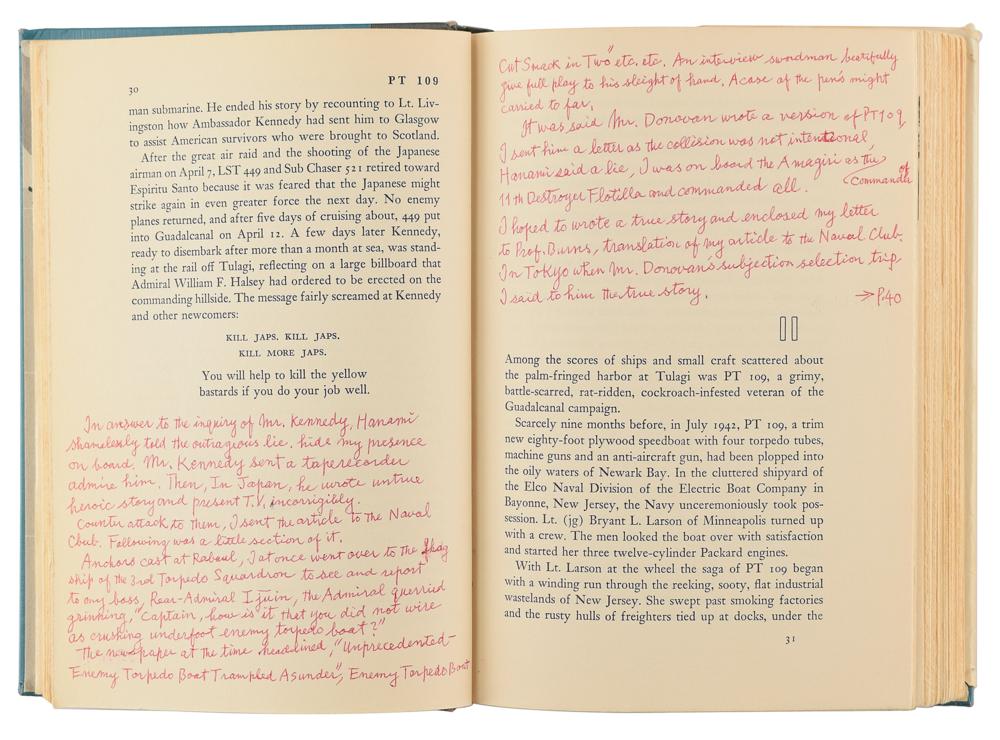 30
PT 109
man submarine. He ended his story by recounting to Lt. Liv-
ingston how Ambassador Kennedy had sent him to Glasgow
to assist American survivors who were brought to Scotland.
After the great air raid and the shooting of the Japanese
airman on April 7, LST 449 and Sub Chaser 521 retired toward
Espiritu Santo because it was feared that the Japanese might
strike again in even greater force the next day. No enemy
planes returned, and after five days of cruising about, 449 put
into Guadalcanal on April 12. A few days later Kennedy,
ready to disembark after more than a month at sea, was stand-
ing at the rail off Tulagi, reflecting on a large billboard that
Admiral William F. Halsey had ordered to be erected on the
commanding hillside. The message fairly screamed at Kennedy
and other newcomers:
KILL JAPS. KILL JAPS.
KILL MORE JAPS.
You will help to kill the yellow
bastards if you do your job well.
In answer to the inquiry of Mr. Kennedy, Hanami
shamelessly told the outrageous lie. hide my presence
on board. Mr. Kennedy sent a taperecorder
admire him. Then, In Japan, he wrote untrue
heroic story and present T.V. incorrigibly.
Counter attack to them, I sent the article to the Naval
Club. Following was a little section of it.
Anchors cast at Rabaul, I at once went over to the flag
ship of the 3rd Torpedo Squardron to see and report
to my boss, Rear-Admiral Ijuin, the Admiral querried
grinning, "Captain, how is it that you did not wire
as crushing underfoot enemy torpedo boat?"
The newspaper at the time headlined, "Unprecedented-
Enemy Torpedo Boat Trampled Asunder", Enemy Torpedo Boat
Cut Smack in Two" etc. etc. An interview swordman beatifully
give full play to his sleight of hand. A case of the pen's might
carried to far.
It was said Mr. Donovan wrote a version of PT109,
I sent him a letter as the collision was not intentional,
Hanami said a lie, I was on board the Amagiri as the
Commander of
11th Destroyer Flotilla and commanded all.
I hoped to wrote a true story and enclosed my letter
to Prof. Burns, translation of my article to the Naval Club.
In Tokyo when Mr. Donovan's subjection selection trip
I said to him the true story.
→ P.40
Among the scores of ships and small craft scattered about
the palm-fringed harbor at Tulagi was PT 109, a grimy,
battle-scarred, rat-ridden, cockroach-infested veteran of the
Guadalcanal campaign.
Scarcely nine months before, in July 1942, PT 109, a trim
new eighty-foot plywood speedboat with four torpedo tubes,
machine guns and an anti-aircraft gun, had been plopped into
the oily waters of Newark Bay. In the cluttered shipyard of
the Elco Naval Division of the Electric Boat Company in
Bayonne, New Jersey, the Navy unceremoniously took pos-
session. Lt. (jg) Bryant L. Larson of Minneapolis turned up
with a crew. The men looked the boat over with satisfaction
and started her three twelve-cylinder Packard engines.
With Lt. Larson at the wheel the saga of PT 109 began
with a winding run through the reeking, sooty, flat industrial
wastelands of New Jersey. She swept past smoking factories
and the rusty hulls of freighters tied up at docks, under the
31